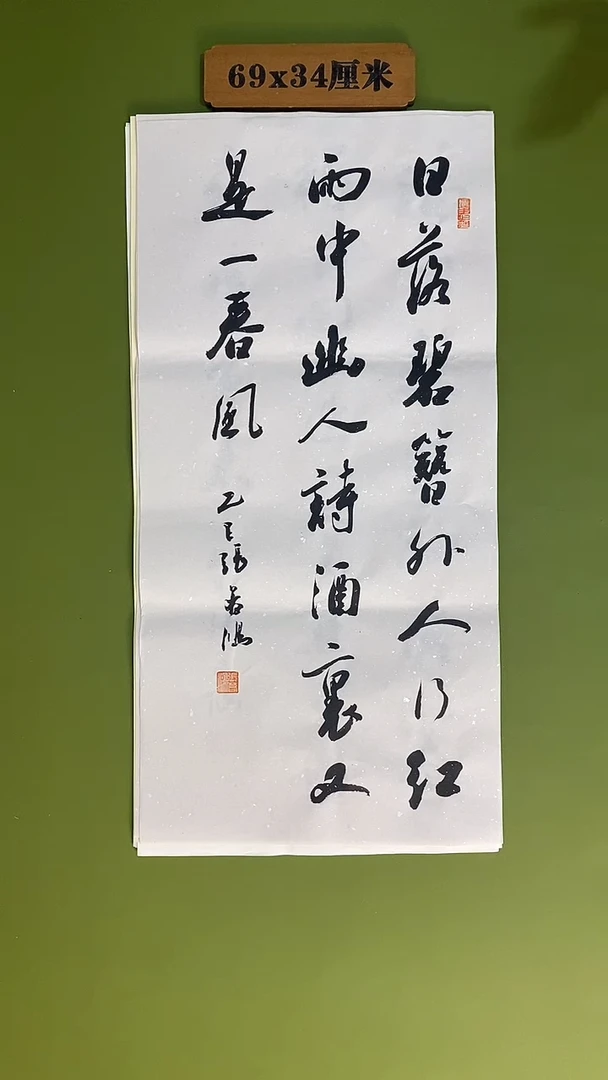 69x34厘米
日落碧簪外人行红
雨中幽人詩酒裏又
是一春風
乙巳張若鴻